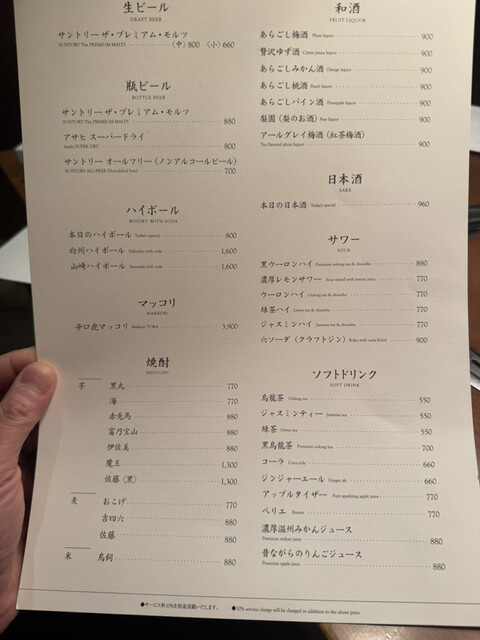 生ビール
DRAFT BEER
サントリー ザ・プレミアム・モルツ 〈中〉800 〈小〉660
SUNTORY The PREMIUM MALTS
瓶ビール
BOTTLE BEER
サントリー ザ・プレミアム・モルツ
SUNTORY The PREMIUM MALTS 880
アサヒ スーパードライ
Asahi SUPER DRY 800
サントリー オールフリー (ノンアルコールビール)
SUNTORY ALL-FREE (Nonalcohol beer) 700
ハイボール
WHISKY WITH SODA
本日のハイボール Today's special 800
白州ハイボール Hakushu with soda 1,600
山崎ハイボール Yamazaki with soda 1,600
マッコリ
MAKKORI
辛口虎マッコリ Makkori TORA 3,900
焼酎
SHOCHU
芋 黒丸 770
海 770
赤兎馬 880
富乃宝山 880
伊佐美 880
魔王 1,300
佐藤〈黒〉 1,300
麦 おこげ 770
吉四六 880
佐藤 880
米 鳥飼 880
和酒
FRUIT LIQUOR
あらごし梅酒 Plum liquor 900
贅沢ゆず酒 Citron junos liquor 900
あらごしみかん酒 Orange liquor 900
あらごし桃酒 Peach liquor 900
あらごしパイン酒 Pineapple liquor 900
梨園 (梨のお酒) Pear liquor 900
アールグレイ梅酒 (紅茶梅酒)
Tea flavored plum liquor 900
日本酒
SAKE
本日の日本酒 Today's special 960
サワー
SOUR
黒ウーロンハイ Premium oolong tea & shouchu 880
濃厚レモンサワー Sour tasted with lemon juice 770
ウーロンハイ Oolong tea & shouchu 770
緑茶ハイ Green tea & shouchu 770
ジャスミンハイ Jasmine tea & shouchu 770
六ソーダ (クラフトジン) Roku with soda (Gin) 900
ソフトドリンク
SOFT DRINK
烏龍茶 Oolong tea 550
ジャスミンティー Jasmine tea 550
緑茶 Green tea 550
黒烏龍茶 Premium oolong tea 700
コーラ Coca cola 660
ジンジャーエール Ginger ale 660
アップルタイザー Pure sparkling apple juice 770
ペリエ Perrier 770
濃厚温州みかんジュース
Premium mikan juice 880
昔ながらのりんごジュース
Premium apple juice 880
◆サービス料10%を別途頂戴いたします。 ◆10% service charge will be charged in addition to the above price.